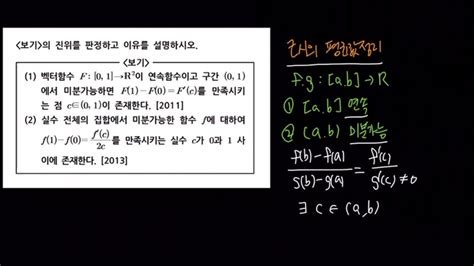 <보기>의 진위를 판정하고 이유를 설명하시오.
<보기>
(1) 벡터함수 F : [0, 1]→R²이 연속함수이고 구간 (0, 1)
에서 미분가능하면 F(1)−F(0)=F′(c)를 만족시키
는 점 c∈(0, 1)이 존재한다. [2011]
(2) 실수 전체의 집합에서 미분가능한 함수 f에 대하여
f(1)−f(0)=f′(c)/2c를 만족시키는 실수 c가 0과 1 사
이에 존재한다. [2013]
코시의 평균값정리
f.g : [a.b] → R
① [a.b] 연속
② (a.b) 미분가능
f(b)-f(a)/g(b)-g(a) = f'(c)/g'(c) ≠0
∃ c ∈ (a,b)